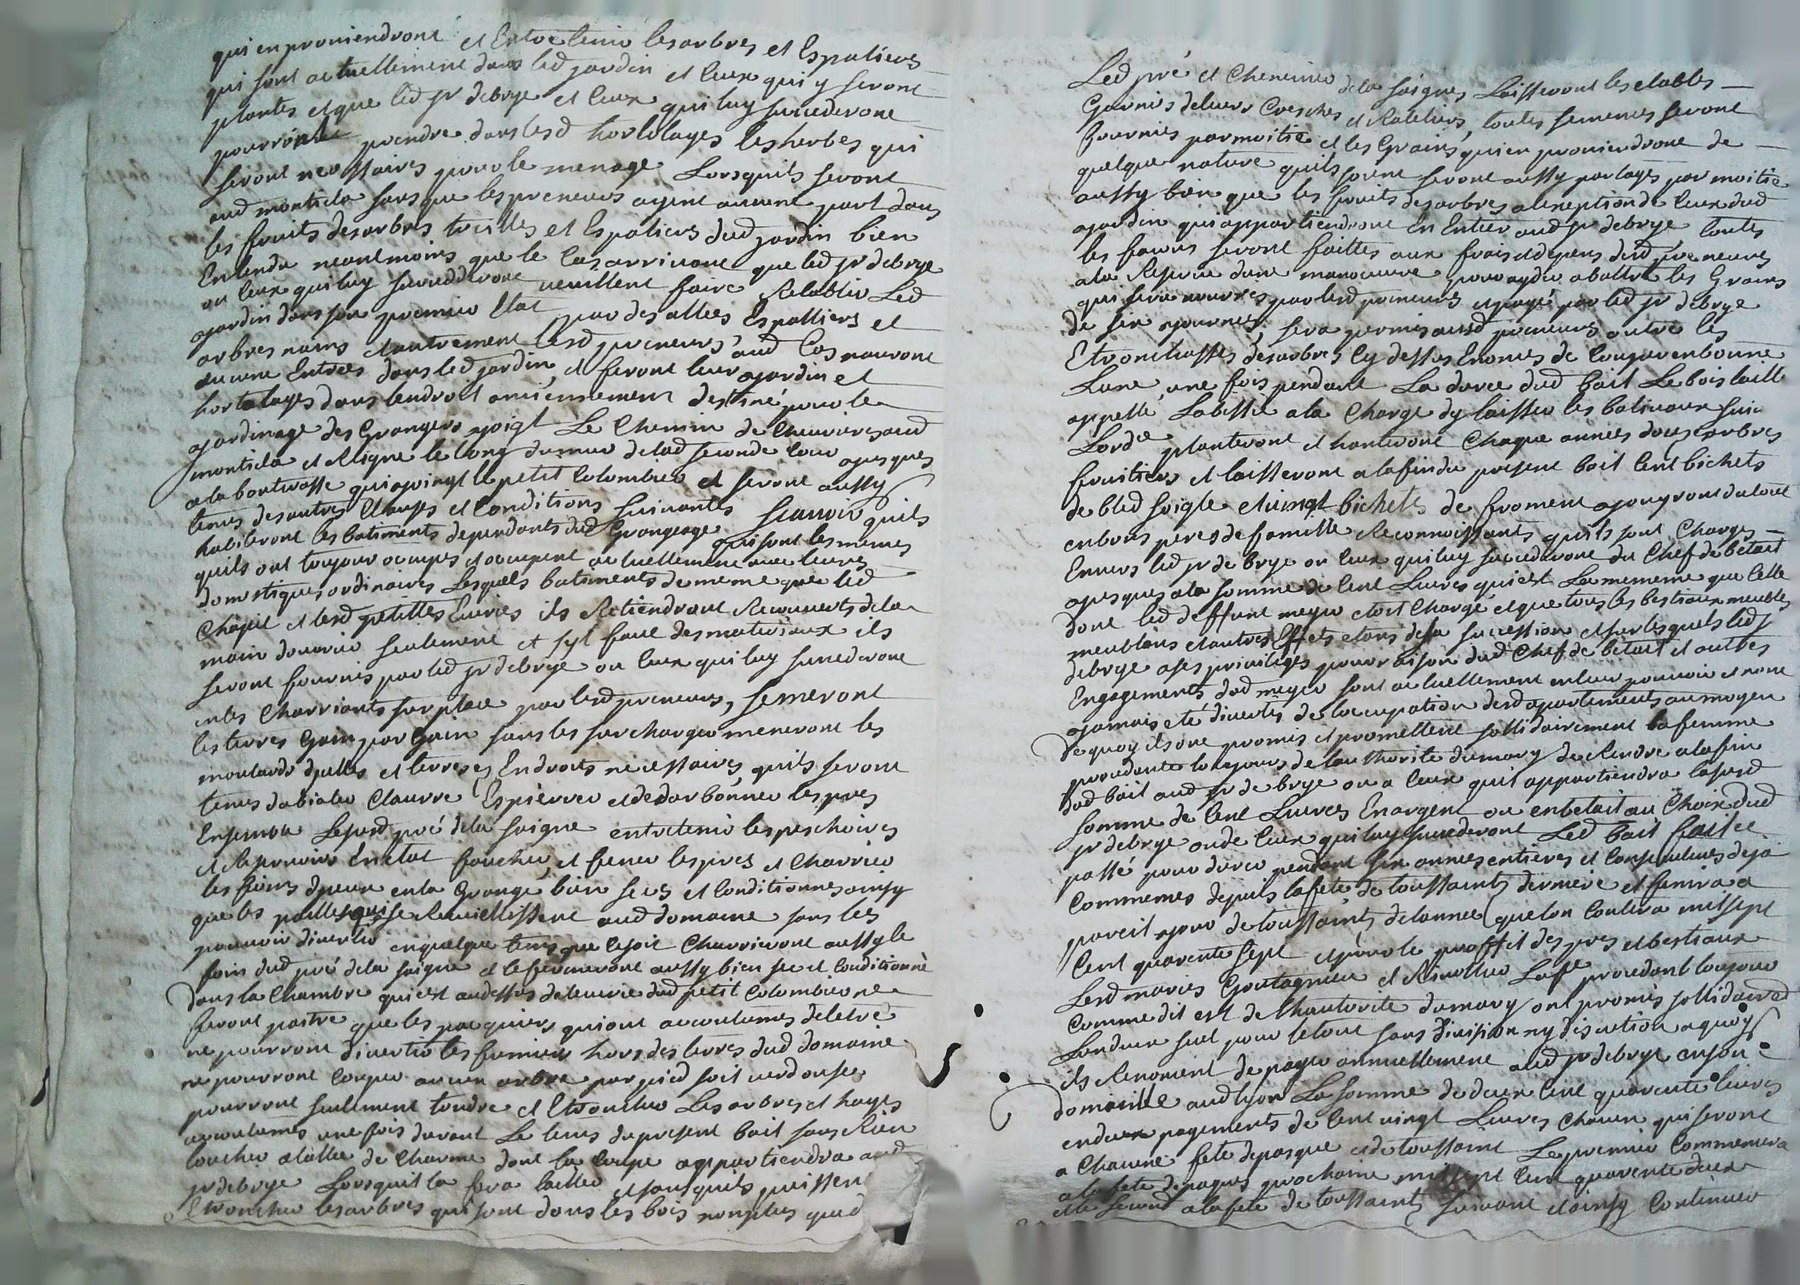 qui en proviendront et Entretenir les arbres et Espaliers
qui sont actuellement dans led jardin et Ceux qui y seront
plantés et que led sr debrye et Ceux qui luy succederont
pourront prendre dans lesd hortolages les herbes qui
seront necessaires pour le menage Lorsquils seront
aud montcla sans que les preneurs ayent aucune part dans
les fruits des arbres treilles et Espaliers dud jardin bien
Entendu neantmoins que le Cas arrivant que led sr debrye
ou Ceux qui luy succederont veuillent faire Retablir Led
jardin dans son premier Etat par des allées Espalliers et
arbres nains et autrement lesd preneurs aud Cas nauront
aucune Entrées dans led jardin et feront leur jardin et
hortolages dans lendroit anciennement destiné pour le
jardinage des Grangers joigt Le Chemin de aud
montcla et Aligne le long du mur de lad seconde Cour jusques
a la qui joingt le petit Colombier et seront aussy
tenus des autres Charges et Conditions suivantes scavoir quils
habiteront les batiments dependants dud Grangeage qui sont les memes
quils ont toujour occupés et occupent actuellement avec leurs
domestiques ordinaires Lesquels batiments de meme que led
Chapit et lesd petittes Ecuries ils Retiendront Recouverts de la
main douvrier seulement et syl faut des materiaux ils
seront fournis par led sr debrye ou Ceux qui luy succederont
en les Charriants sur place par lesd preneurs, semeront
les terres Gain par Gain sans les surcharger meneront les
et terres es Endroits necessaires quils seront
tenus Claurre Espierrer et les prés
Ensemble led pré dela saigne entretenir les peschoires
et Reservoirs En etat faucher et fener les prés et Charrier
les foins diceux en la Grange bien secs et Conditionnes ainsy
que les pailles qui se Receuillissent aud domaine sans les
pouvoir divertir en quelque tems que ce soit Charrieront aussy le
foin dud pré dela saigne et le fermeront aussy bien sec et Conditionné
dans la Chambre qui est au dessus de lecurie dud petit Colombier ne
feront paitre que les pacquiers qui ont accoutumés de letre
ne pourront divertir les fumiers hors des terres dud domaine
ne pourront Couper aucun arbre par pied soit verd ou sec
pourront seulement tondre et Etroncher Les arbres et hayes
accoutumés une fois durant Le tems du present bail sans Rien
toucher a lallée de Charme dont la Coupe appartiendra aud
sr debrye Lorsquil la fera tailler et sans quils puissent
Etroncher les arbres qui sont dans les bois
Led pré et Chenevier dela saigne, Laisseront les etables
Garnis de leurs Creches et Rateliers, toutes semences seront
fournies par moitié et les Grains qui en proviendront de
quelque nature quils soient seront aussy partagés par moitié
aussy bien que les fruits des arbres a lexeption de Ceux dud
jardin qui appartiendront En Entier aud sr debrye toutes
les facons seront faittes aux frais et depens desd preneurs
a la Reserve dune manoeuvre pour ayder a battre les Grains
qui sera nourrie par lesd preneurs et payée par led sr debrye
de six journées, sera permis ausd preneurs outre les
des arbres Cy dessus Enoncés de Couper en bonne
Lune une fois pendant La durée dud bail Le bois taillé
appellé a la Charge dy laisser les balivaux suiv
Lord.e planteront et hanteront Chaque années douze arbres
fruitiers et laisseront a la fin du present bail Cent bichets
de bled seigle et vingt bichets de froment jouyront du tout
en bons peres de famille Reconnoissants quils sont Chargés
Envers led sr de brye ou Ceux qui luy succederont du Chef de betail
jusques a la somme de Cent Livres qui est La mememe que Celle
dont led deffunt meyer etoit Chargé et que tous les bestiaux meubles
meublans et autres Effets etans de sa succession et sur lesquels led sr
debrye a ses privileges pour Raison dud Chef de betail et autres
Engagements dud meyer sont actuellement en leur pouvoir et nont
jamais eté divertis de loccupation desd apartements au moyen
de quoy ils ont promis et promettent sollidairement la femme
procedante toujours de lauthorité du mary de Rendre a la fin
dud bail aud sr de brye ou a Ceux quil appartiendra la susd
somme de Cent Livres En argent ou en betail au Choix dud
sr debrye ou de Ceux qui luy succederont Led bail fait et
passé pour durer pendant six années entieres et Consecutives deja
Commencées depuis la fete de toussaints derniere et finira a
pareil jour de toussaints de lannée que lon Contera mil sept
Cent quarente sept et pour le proffit des prés et bestiaux
Lesd mariés et Lad fe procedant toujours
Comme dit est de lhautorité du mary ont promis sollidairemt
Lun deux seul pour le tout sans division ny discution a quoy
ils Renoncent de payer annuellement aud sr debrye en son
domicille aud lyon La somme de deux Cent quarente livres
en deux payements de Cent vingt Livres Chacun qui seront
a Chacune fete de pasque et de toussaint Le premier Commencera
a la fete de paques prochaine mil sept Cent quarente deux
et le second a la fete de toussaints suivant et ainsy Continuer